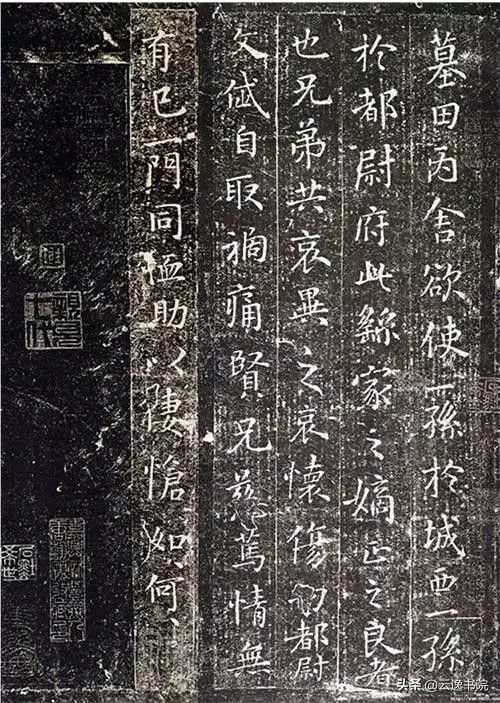 墓田丙舍欲使一孫於城西一孫
於都尉府此繇家之嫡正之良者
也兄弟共哀異之哀懷傷切都尉
文岱自取禍痛賢兄慈篤情無
有已一門同恤助以悽愴如何〻
头条 @云逸书院